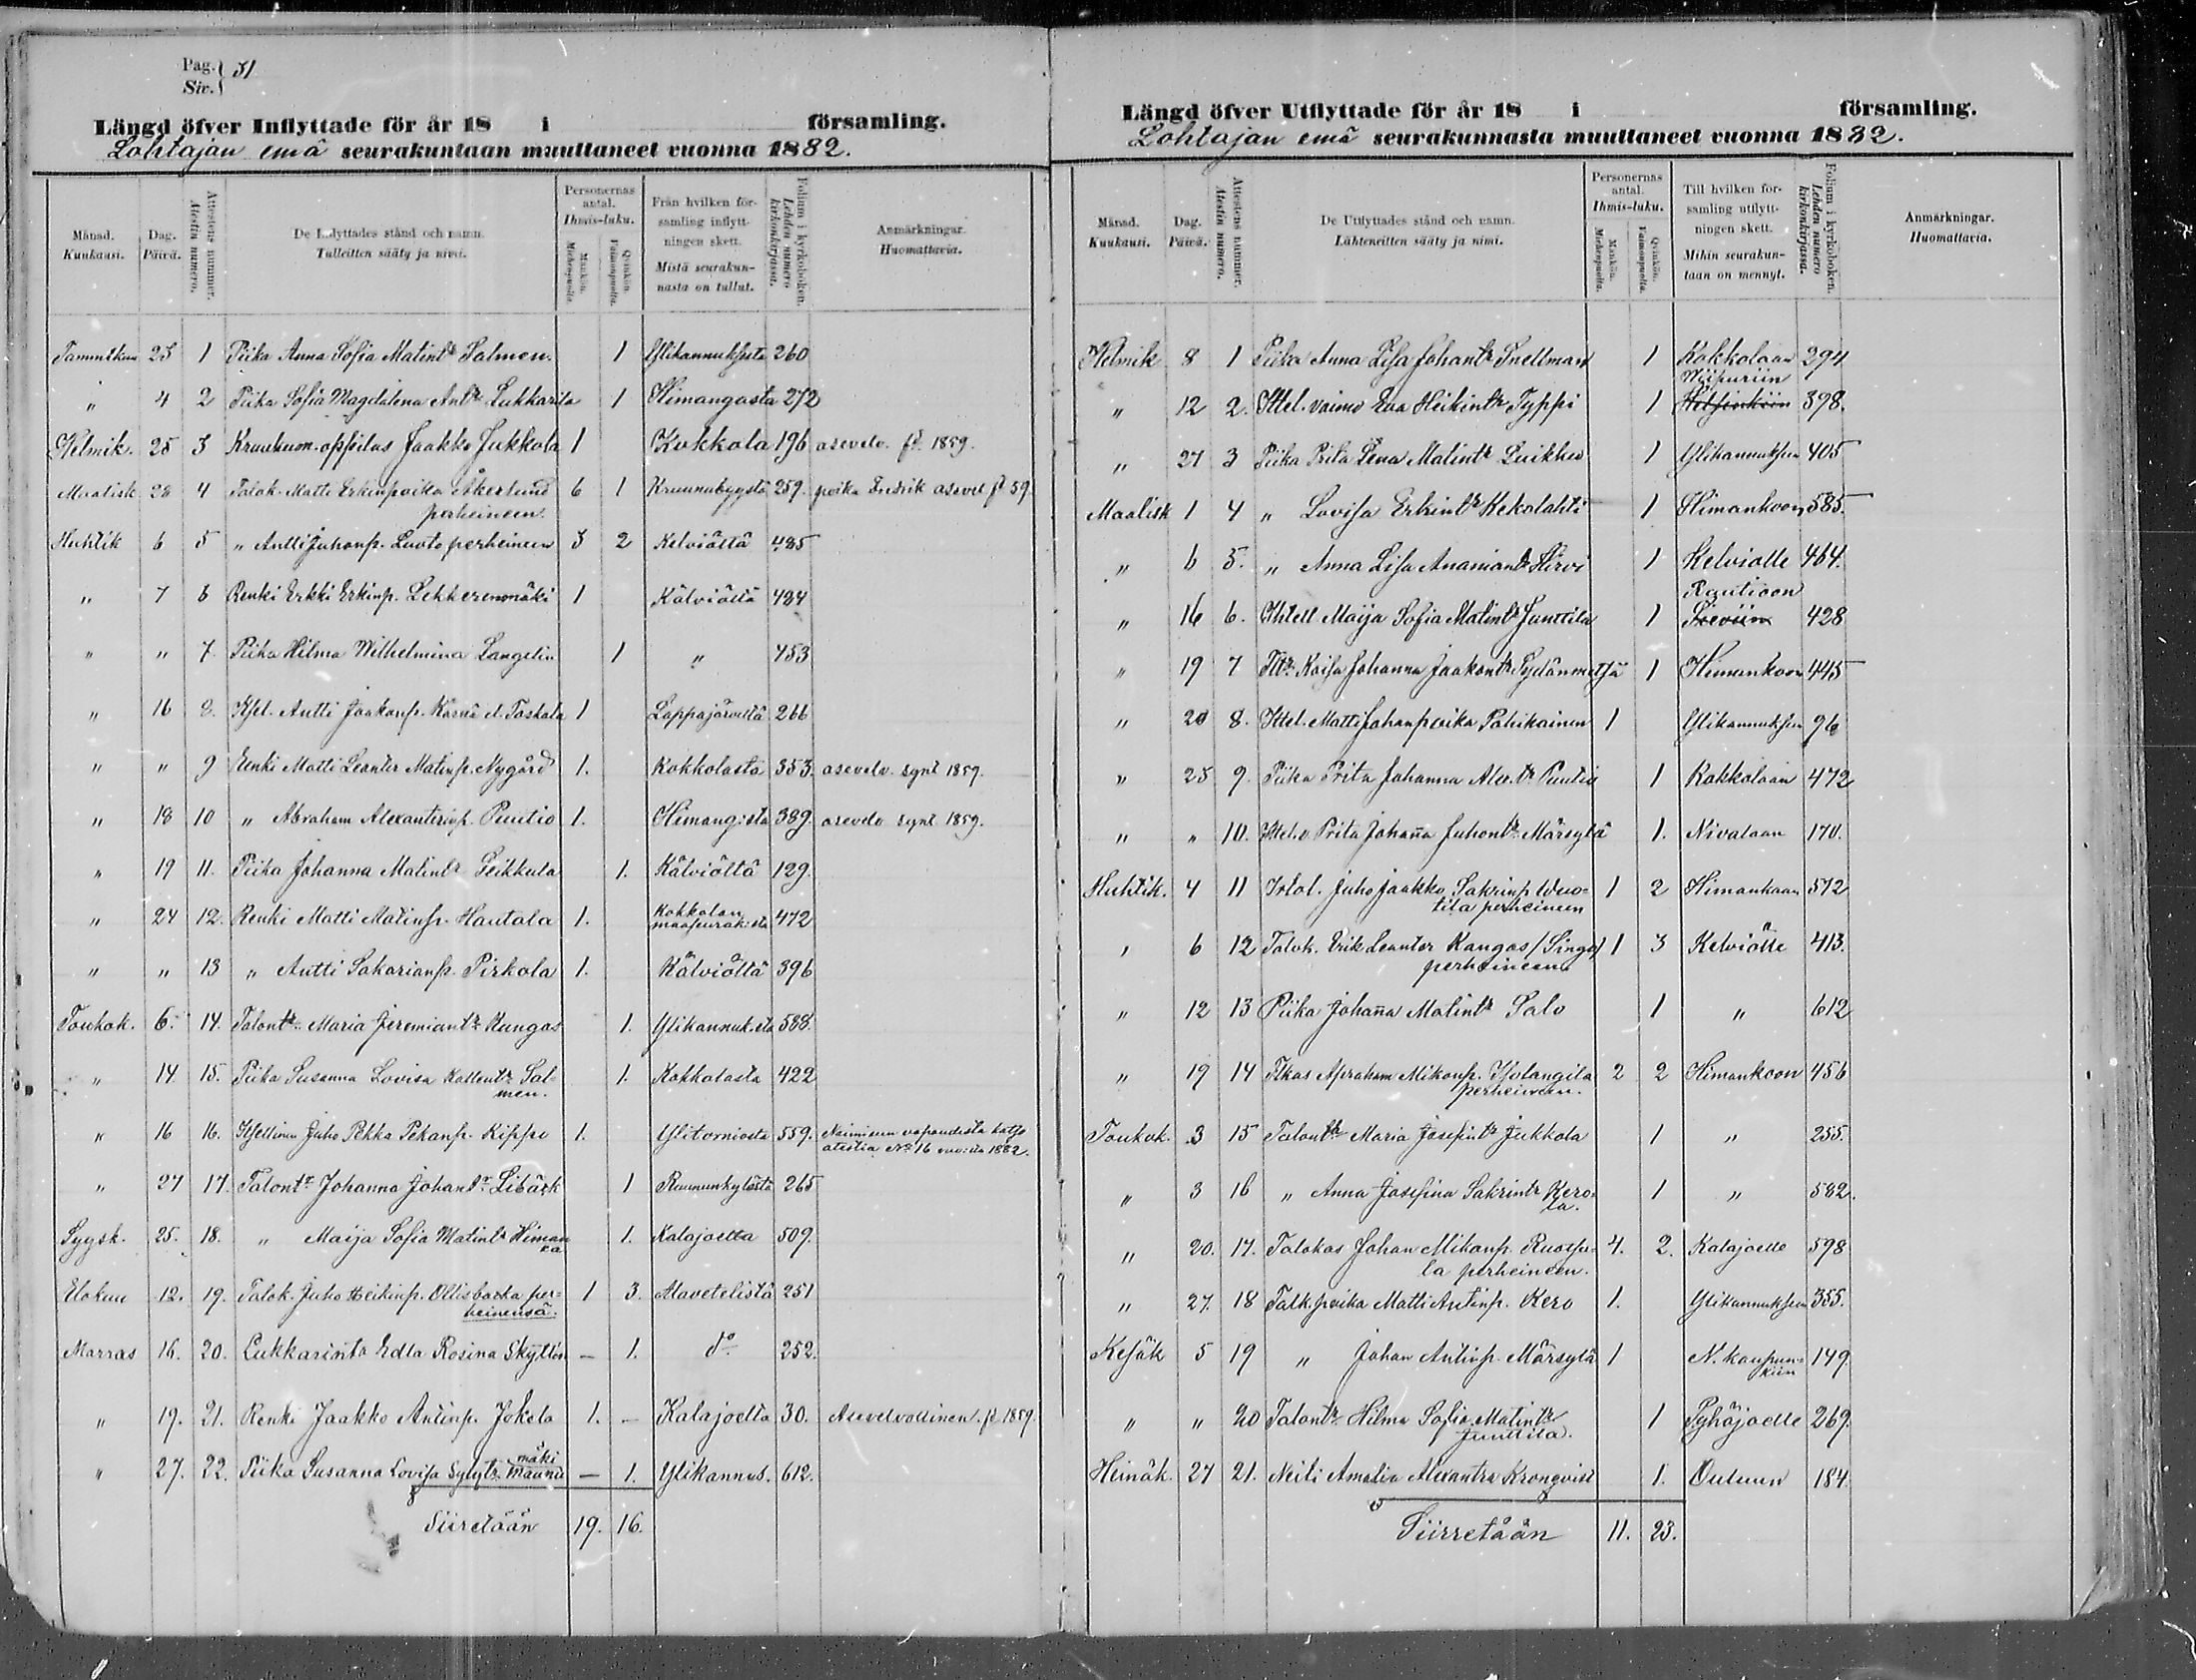 Pag. 31
Siv.
Längd öfver Inflyttade för år 18 i församling.
Lohtajan emä seurakuntaan muuttaneet vuonna 1882.
Månad. Kuukausi.
Dag. Päivä.
Attestens nummer. Atestin numero.
De Inflyttades stånd och namn. Tulleitten sääty ja nimi.
Personernas antal. Ihmis-luku.
Mankön. Miehenpuolta.
Qvinkön. Vaimonpuolta.
Från hvilken församling inflyttningen skett. Mistä seurakunnasta on tullut.
Folium i kyrkoboken. Lehden numero kirkonkirjassa.
Anmärkningar. Huomattavia.
Tammikuu 25 1 Piika Anna Sofia Matintr Salmen. 1 Ylikannuksesta 260
" 4 2 Piika Sofia Magdalena Anttr Lukkarila 1 Himangasta 272
Helmik. 25 3 Kruukum. oppilas Jaakko Jukkola 1 Kokkola 196 asevelv. fd. 1859.
Maalisk 28 4 Talok. Matti Erkinpoika Åkerlund 6 1 Kruunubyystä 259. poika Fredrik asevel fd 59.
perheineen.
Huhtik 6 5 " Antti Juhonp. Luoto perheineen 3 2 Kelviältä 485
" 7 6 Renki Erkki Erkinp. Lehherenmäki 1 Kälviältä 484
" " 7. Piika Hilma Wilhelmina Langelin 1 " 453
" 16 8. Itsel. Antti Jaakonp. Kärnä el. Taskala 1 Lappajärveltä 266
" " 9 Renki Matti Leanter Matinp. Nygård 1. Kokkolasta 353. asevelv. synt 1859.
" 18 10 " Abraham Alexanterinp. Puutio 1. Himangasta 389. asevelv synt 1859.
" 19 11. Piika Johanna Matintr Leikkala 1. Kälviältä 129.
" 24 12. Renki Matti Matinp. Hautala 1. Kokkolan maaseurak:sta 472
" " 13 " Antti Sakarianp. Pirkola 1. Kälviältä 396
Toukok. 6. 14. Talontr Maria Jeremiantr Kangas 1. Ylikannuk.sta 588.
" 14. 15. Piika Susanna Lovisa Kallentr Sal-
men. 1. Kokkolasta 422
" 16 16. Itsellinen Juho Pekka Pekanp. Kippo 1. Ylitorniosta 559. Naimisen vapaudesta katso
atestia No 16 vuosta 1882.
" 27 17. Talontr Johanna Johantr Libäck 1 Ruununkylästä 265
Syysk. 25. 18. " Maija Sofia Matintr Himan
ka 1. Kalajoelta 509.
Elokuu 12. 19. Talok. Juho Heikinp. Ollisbacka per-
heinensä. 1 3. Alavetelistä 251
Marras 16. 20. Lukkarintr Edla Rosina Skyttén — 1. do 252.
" 19. 21. Renki Jaakko Antinp. Jokela 1. — Kalajoelta 30. Asevelvollinen. fd 1859.
" 27. 22. Piika Susanna Lovisa Maunumäki — 1. Ylikannus. 612.
Siiretään 19. 16.
Längd öfver Utflyttade för år 18 i församling.
Lohtajan emä seurakunnasta muuttaneet vuonna 1882.
Månad. Kuukausi.
Dag. Päivä.
Attestens nummer. Atestin numero.
De Utflyttades stånd och namn. Lähteneitten sääty ja nimi.
Personernas antal. Ihmis-luku.
Mankön. Miehenpuolta.
Qvinkön. Vaimonpuolta.
Till hvilken församling utflyttningen skett. Mihin seurakuntaan on mennyt.
Folium i kyrkoboken. Lehden numero kirkonkirjassa.
Anmärkningar. Huomattavia.
Helmik 8 1 Piika Anna Lisa Johantr Snellman 1 Kokkolaan 294
Wiipuriin
" 12 2. Ittel. vaimo Eva Heikintr Typpi 1 Helsinkiin 398.
" 27 3 Piika Prita Lena Matintr Luikku 1 Ylikannuksen 405
Maalisk 1 4 " Lovisa Erkintr Kekolahti 1 Himankoon 585.
" 6 5. " Anna Lisa Ananiantr Hirvi 1 Kelviälle 464.
Rautioon
" 16 6. Ittell Maija Sofia Matintr Junttila 1 Sieviin 428
" 19 7 Tltr. Kaisa Johanna Jaakontr Sydänmetsä 1 Himankoon 445
" 20 8. Ittel. Matti Johanpoika Pahikainen 1 Ylikannuksen 96
" 25 9. Piika Prita Johanna Alex.tr Puutio 1 Kokkolaan 472
" " 10. Ittel.v Prita Johanna Juhontr Märsylä 1. Nivalaan 170.
Huhtik. 4 11 Irtol. Juho Jaakko Sakrinp Wuo-
tila perheineen 1 2 Himankaan 572
" 6 12 Talok. Erik Leanter Kangas /Singo/
perheineen 1 3 Kelviälle 413.
" 12 13 Piika Johanna Matintr Salo 1 " 612
" 19 14 Tlkas Apraham Mikonp. Isolangila
perheineen. 2 2 Himankoon 456
Toukok. 3 15 Talontr Maria Josefintr Jukkola 1 " 255.
" 3 16 " Anna Josefina Sakrintr Kero-
la. 1 " 582.
" 20. 17. Talokas Johan Mikanp. Ruotsa-
la perheineen. 4. 2. Kalajoelle 598
" 27. 18 Talk. poika Matti Antinp. Kero 1. Ylikannuksen 355.
Kesäk 5 19 " Johan Antinp. Märsylä 1 N. kaupun-
kiin 149.
" " 20 Talontr Hilma Sofia Matintr
Junttila. 1 Pyhäjoelle 269.
Heinäk. 27 21. Neiti Amalia Alexantra Kronqvist 1. Ouluun 184.
Siirretään 11. 23.